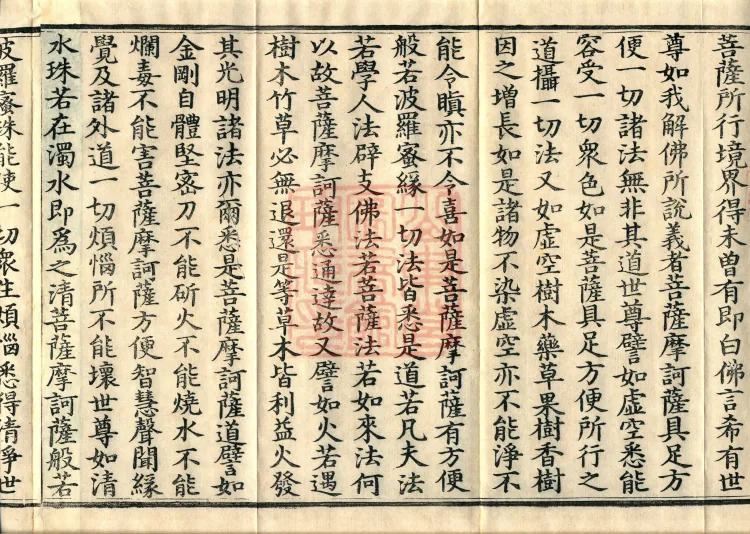 菩薩所行境界得未曽有即白佛言希有世
尊如我解佛所說義者菩薩摩訶薩具足方
便一切諸法無非其道世尊譬如虛空悉能
容受一切衆色如是菩薩具足方便所行之
道攝一切法又如虛空樹木藥草果樹香樹
因之增長如是諸物不染虛空亦不能淨不
能令瞋亦不令喜如是菩薩摩訶薩有方便
般若波羅蜜緣一切法皆悉是道若凡夫法
若學人法辟支佛法若菩薩法若如來法何
以故菩薩摩訶薩悉通達故又譬如火若遇
樹木竹草必無退還是等草木皆利益火發
其光明諸法亦爾悉是菩薩摩訶薩道譬如
金剛自體堅密刀不能斫火不能燒水不能
爛毒不能害菩薩摩訶薩方便智慧聲聞緣
覺及諸外道一切煩惱所不能壞世尊如清
水珠若在濁水即爲之清菩薩摩訶薩般若
波羅蜜珠能使一切衆生煩惱悉得清淨世